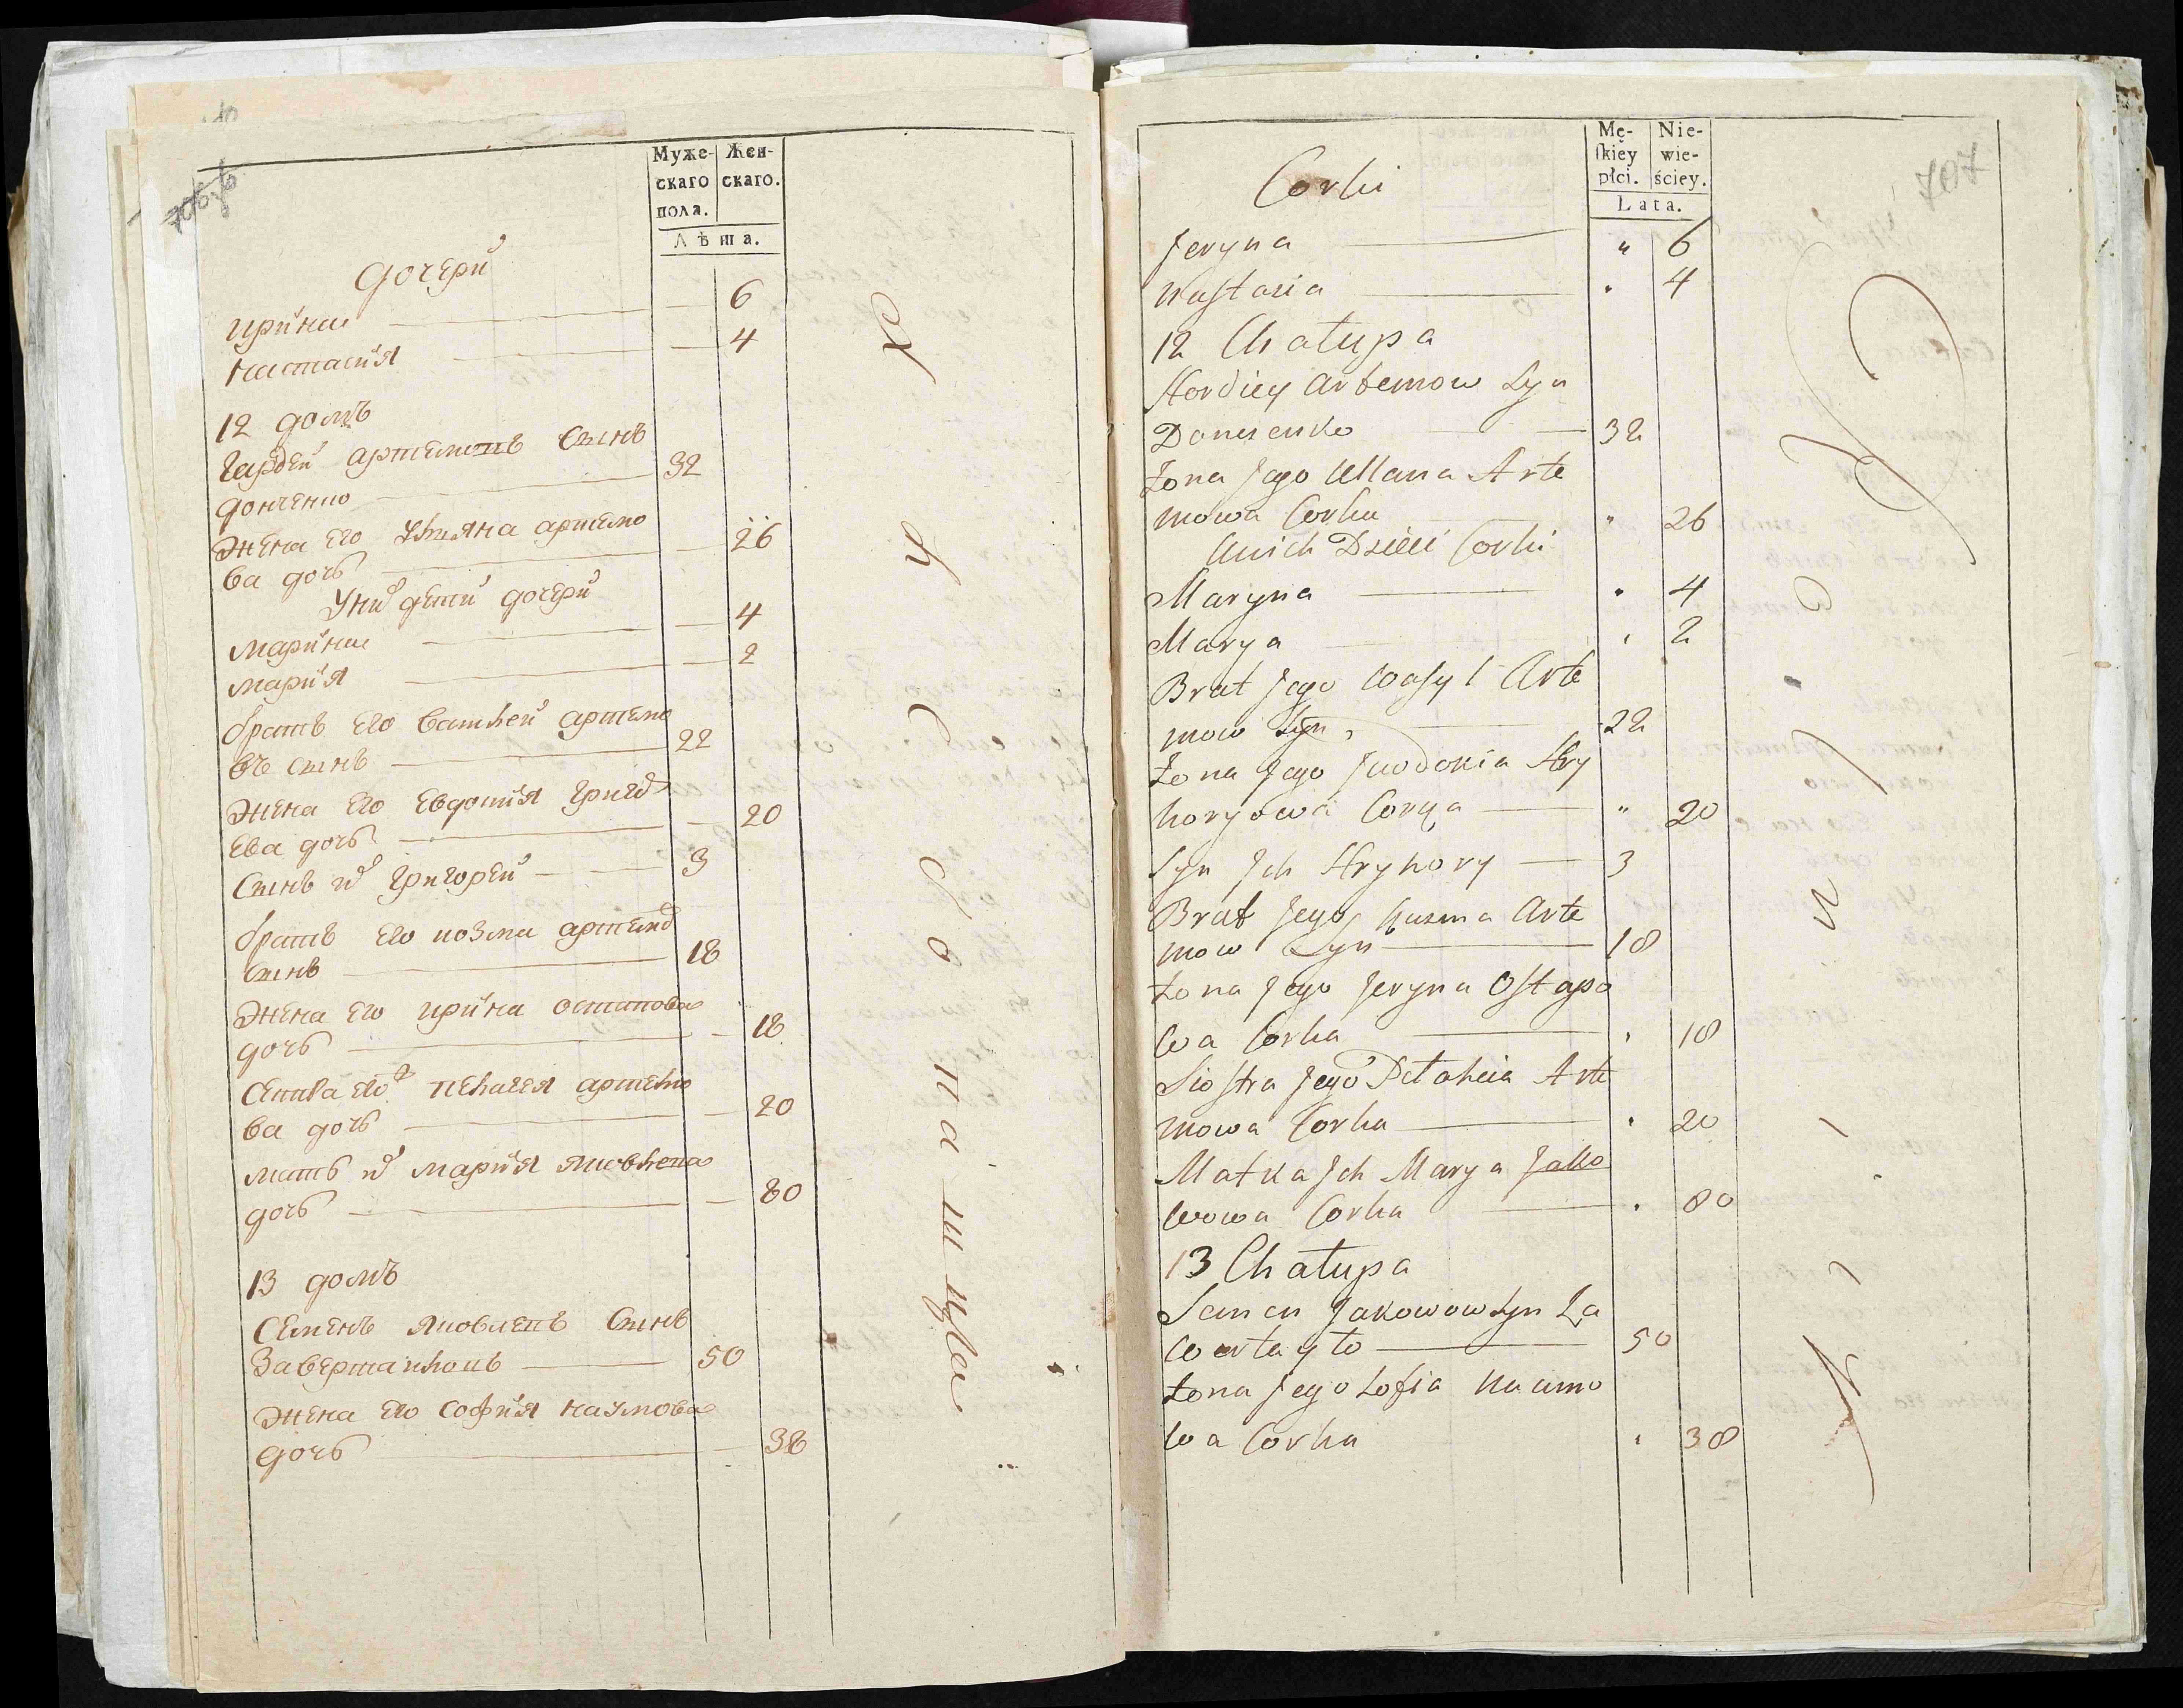 Муже- Жен-
скаго скаго.
пола.
Лѣта.
Дочери
Ирина — 6
Настасия — 4
12 домъ
Гардей Артемовъ Сынъ
Донченко 32
Жена его Уляна Артемо
ва дочь — 26
У них дети дочери
Марина — 4
Мария — 2
братъ его Василей Артемо
въ сынъ 22
Жена его Евдокия Григо
ева дочь — 20
Сынъ их Григорей 3
братъ его Козма Артемо
Сынъ 18
Жена его Ирина Остапова
дочь — 18
Сестра его Пелагея Артемо
ва дочь — 20
мать их Мария Яковлева
дочь — 80
13 домъ
Семенъ Яковлевъ Сынъ
Завертайло 50
Жена его София Наумова
дочь — 38
707
Mę- Nie-
skiey wie-
płci. ściey.
Lata.
Corki
Jeryna " 6
Nastazia " 4
12 Chałupa
Hordiey Artemow Syn
Donczenko 32
Żona Jego Ullana Arte
mowa Corka " 26
Unich Dzieci Corki
Maryna " 4
Marya " 2
Brat Jego Wasyl Arte
mow Syn 22
Żona Jego Jwdokia Hry
horyowa Corka " 20
Syn Jch Hryhory 3
Brat Jego Kuzma Arte
mow Syn 18
Żona Jego Jeryna Ostapo
wa Corka " 18
Siostra Jego Pelaheia Arte
mowa Corka " 20
Matka Jch Marya Jako
wowa Corka " 80
13 Chałupa
Semen Jakowow Syn Za
wertayło 50
Żona Jego Zofia Naumo
wa Corka " 38